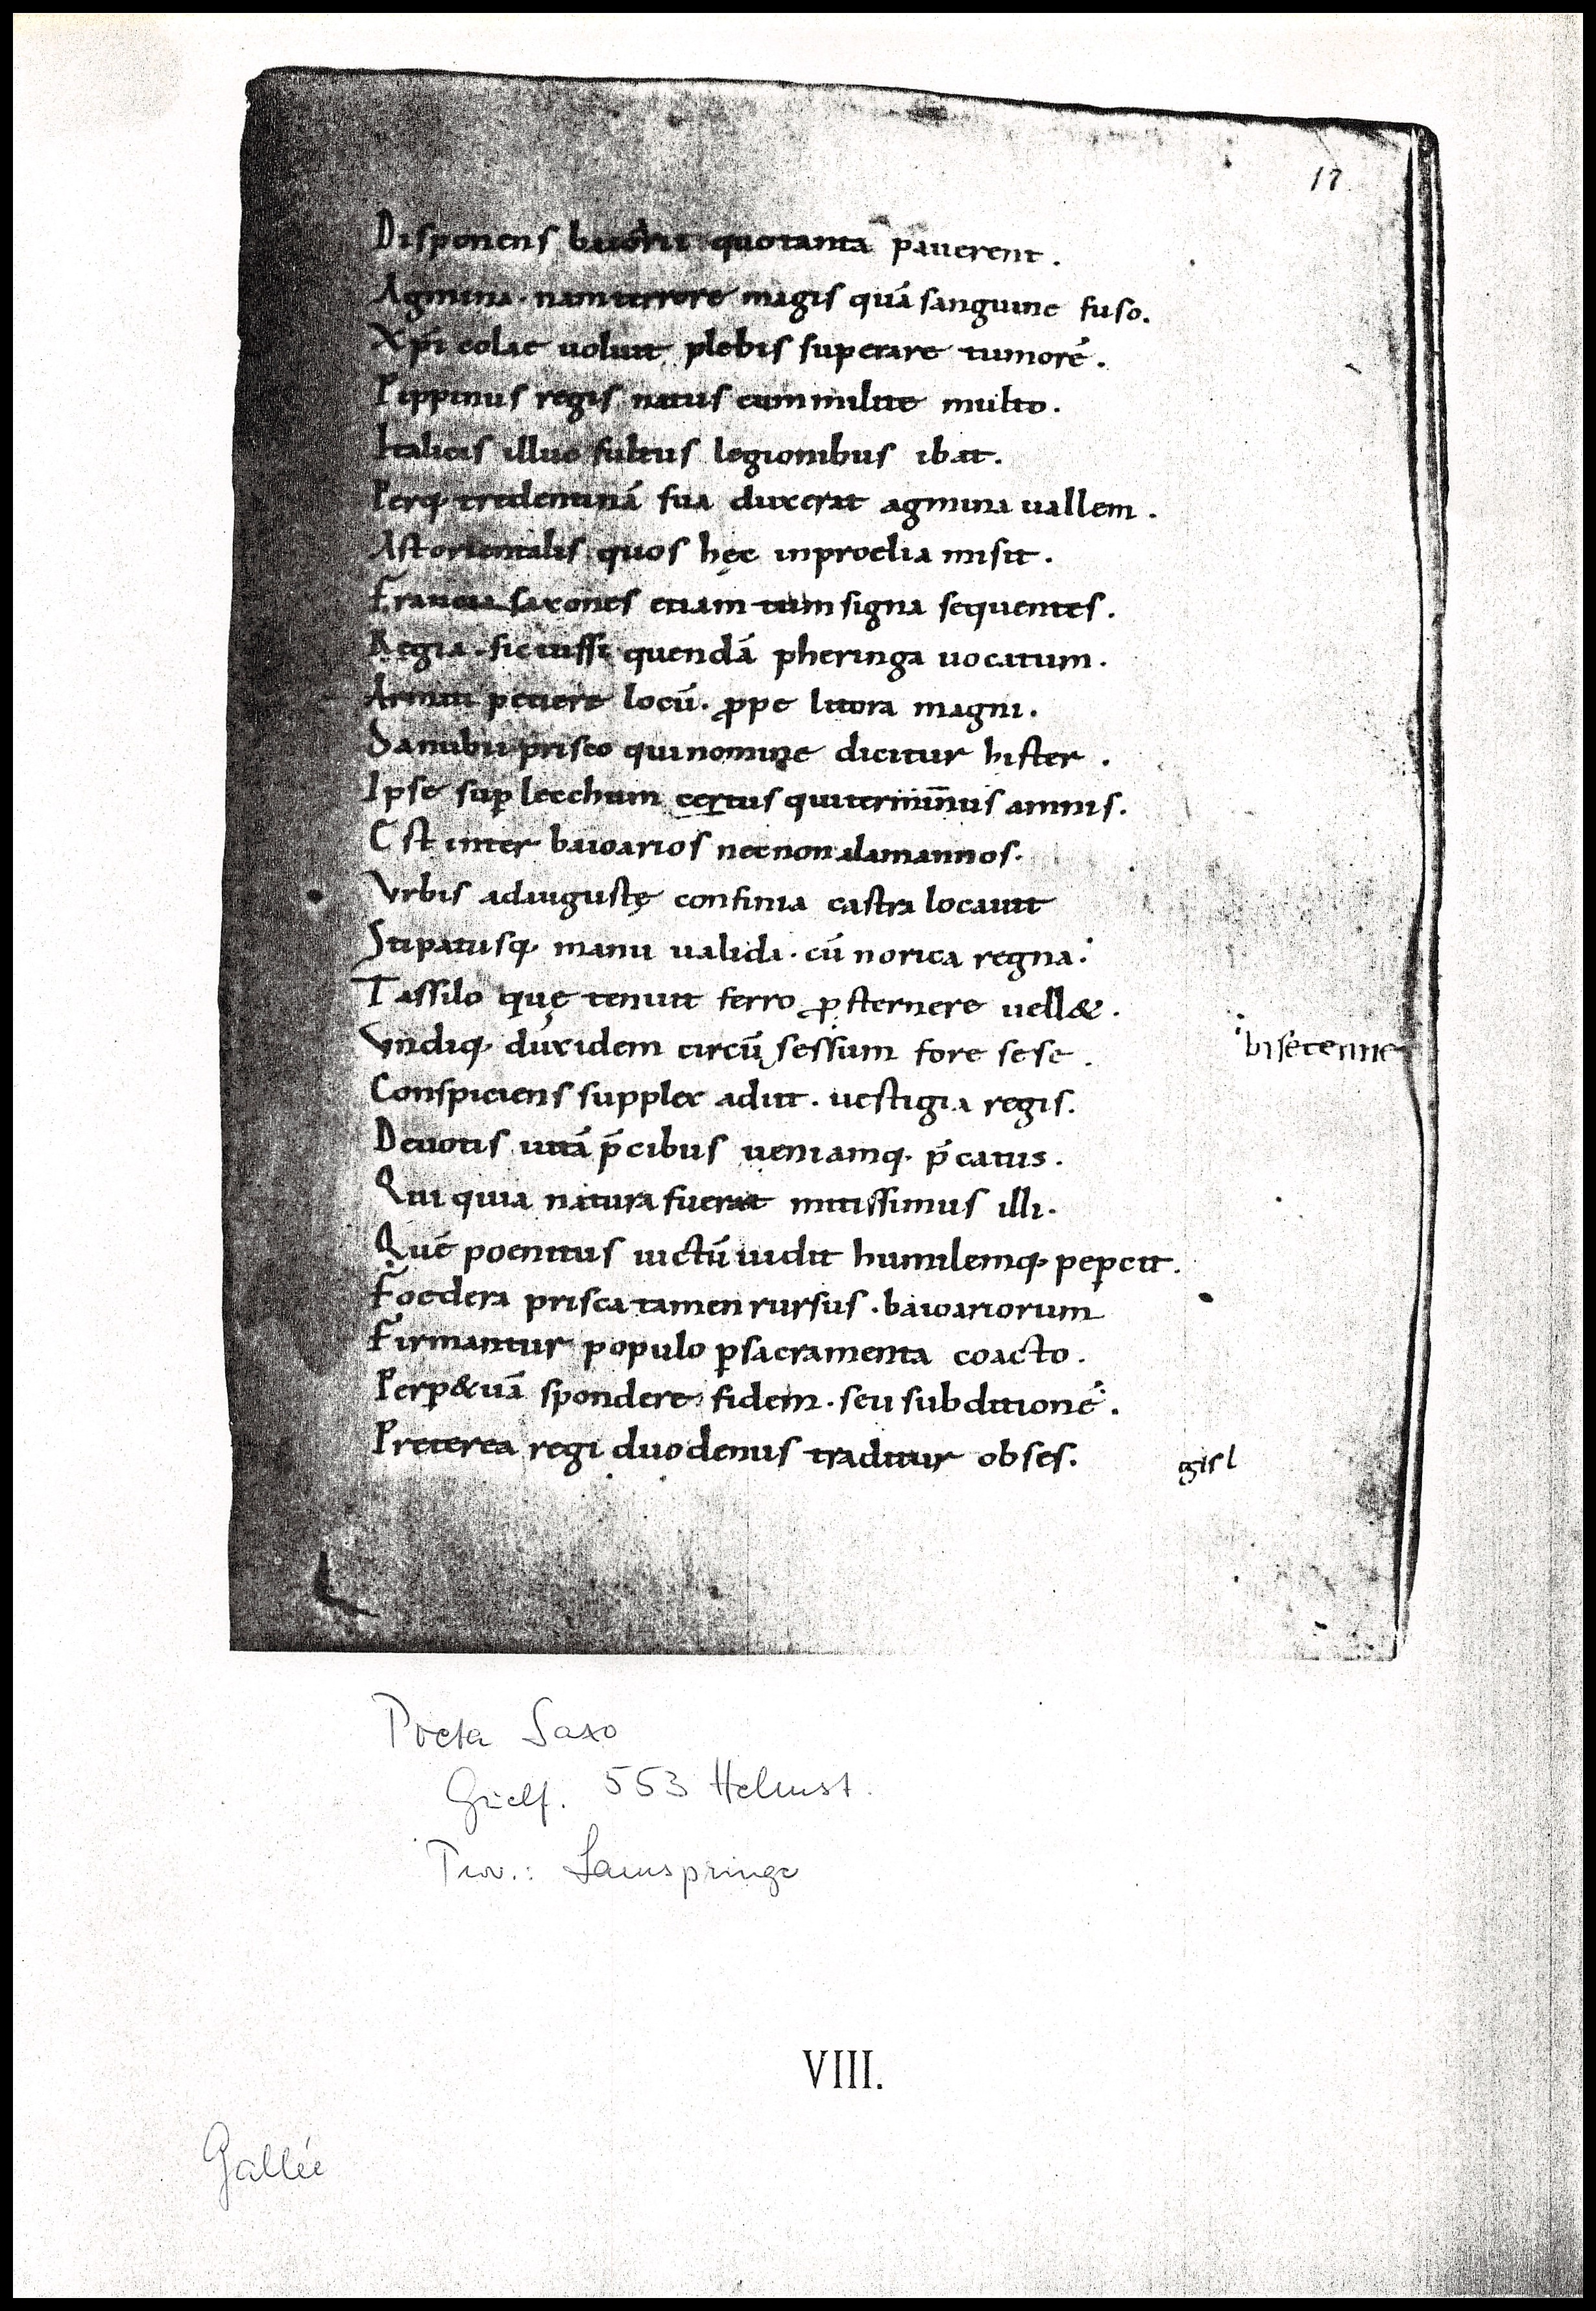 17
Disponens baioarii quo tanta pauerent.
Agmina. nam terrore magis quā sanguine fuso.
Xp̄icolae uoluit plebis superare tumorē.
Pippinus regis natus cum milite multo.
Italicis illuc fultus legionibus ibat.
Perq. tredentinā sua duxerat agmina uallem.
Ast orientalis quos hęc in proelia misit.
Francia saxones etiam tum signa sequentes.
Regia. sic iussi quendā pheringa uocatum.
Armati petiere locū. ꝓpe litora magni.
Danubii prisco qui nomine dicitur hister.
Ipse suꝑ lecchum certus qui terminus amnis.
Est inter baioarios necnon alamannos.
Vrbis ad augustę confinia castra locauit
Stipatusq. manu ualida. cū norica regna:
Tassilo quę tenuit ferro ꝓsternere uell&.
Vndiq. dux idem circū sessum fore sese.
bisetenne
Conspiciens supplex adiit. uestigia regis.
Deuotis uitā p̄cibus ueniamq. p̄catus.
Qui quia natura fuerat mitissimus illi.
Quē poenitus uictū uidit humilemq. peꝑcit.
Foedera prisca tamen rursus. baioariorum
Firmantur populo ꝑ sacramenta coacto.
Perp&uā spondere fidem. seu subditionē.
Preterea regi duodenus traditur obses.
gisl
Poeta Saxo
Guelf. 553 Helmst.
Prov.: Lamspringe
VIII.
Gallée